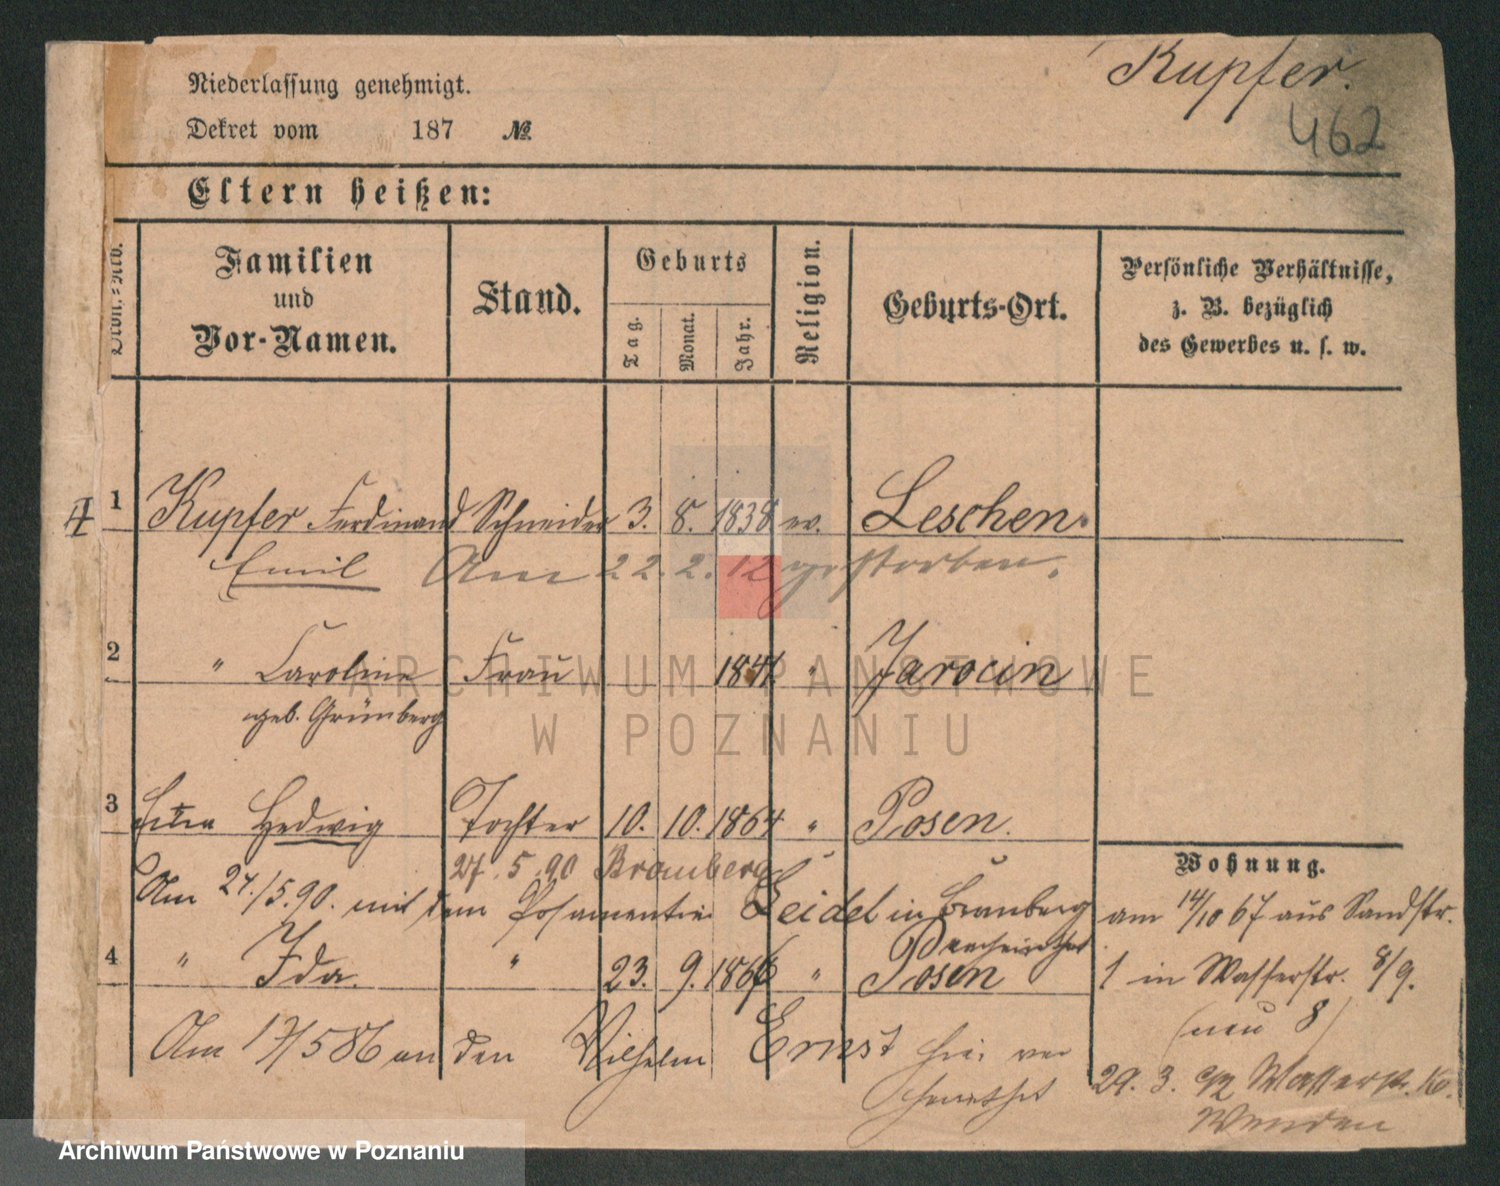 Kupfer.
462
Niederlassung genehmigt.
Dekret vom 187 №
Eltern heißen:
Familien und Vor-Namen.
Stand.
Geburts
Tag.
Monat.
Jahr.
Religion.
Geburts-Ort.
Persönliche Verhältnisse,
z. B. bezüglich
des Gewerbes u. s. w.
1 Kupfer Ferdinand Schneider 3. 8. 1838 ev. Leschen.
Emil Am 22. 2. 12 gestorben.
2 " Caroline Frau 1841 " Jarocin
geb. Grünberg
3 Hedwig Tochter 10. 10. 1864 " Posen.
27. 5. 90 Bromberg
Am 24./5.90. mit dem Posamentier Seidel in Bromberg
verheirathet
4 " Ida. " 23. 9. 1866 " Posen
Am 17/5 86 an den Wilhelm Ernst hier ver
heirathet
Wohnung.
am 14/10 67 aus Sandstr.
1 in Wasserstr. 8/9.
(neu 8)
29. 3. Wasserstr. 16.
Wenden
ARCHIWUM PAŃSTWOWE
W POZNANIU
Archiwum Państwowe w Poznaniu